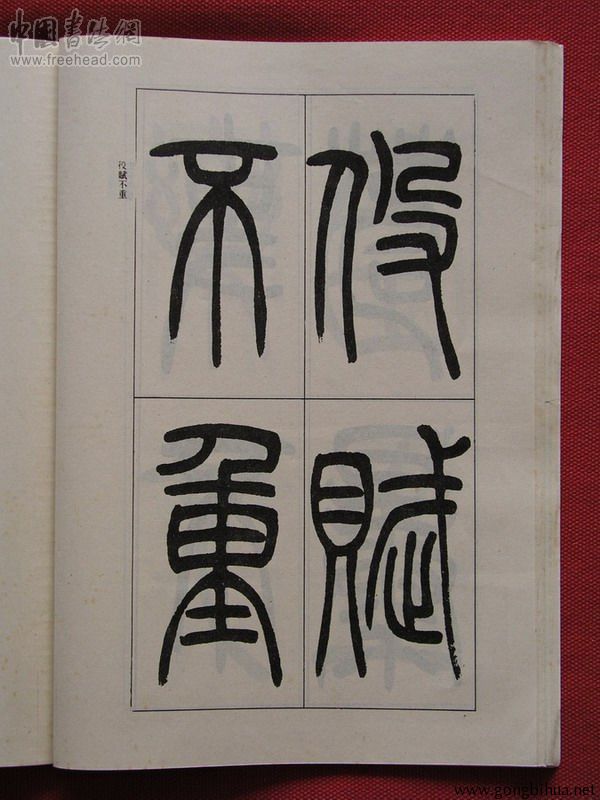 中国书法網
www.freehead.com
役賦不重
役賦
不重
www.gongbihua.net